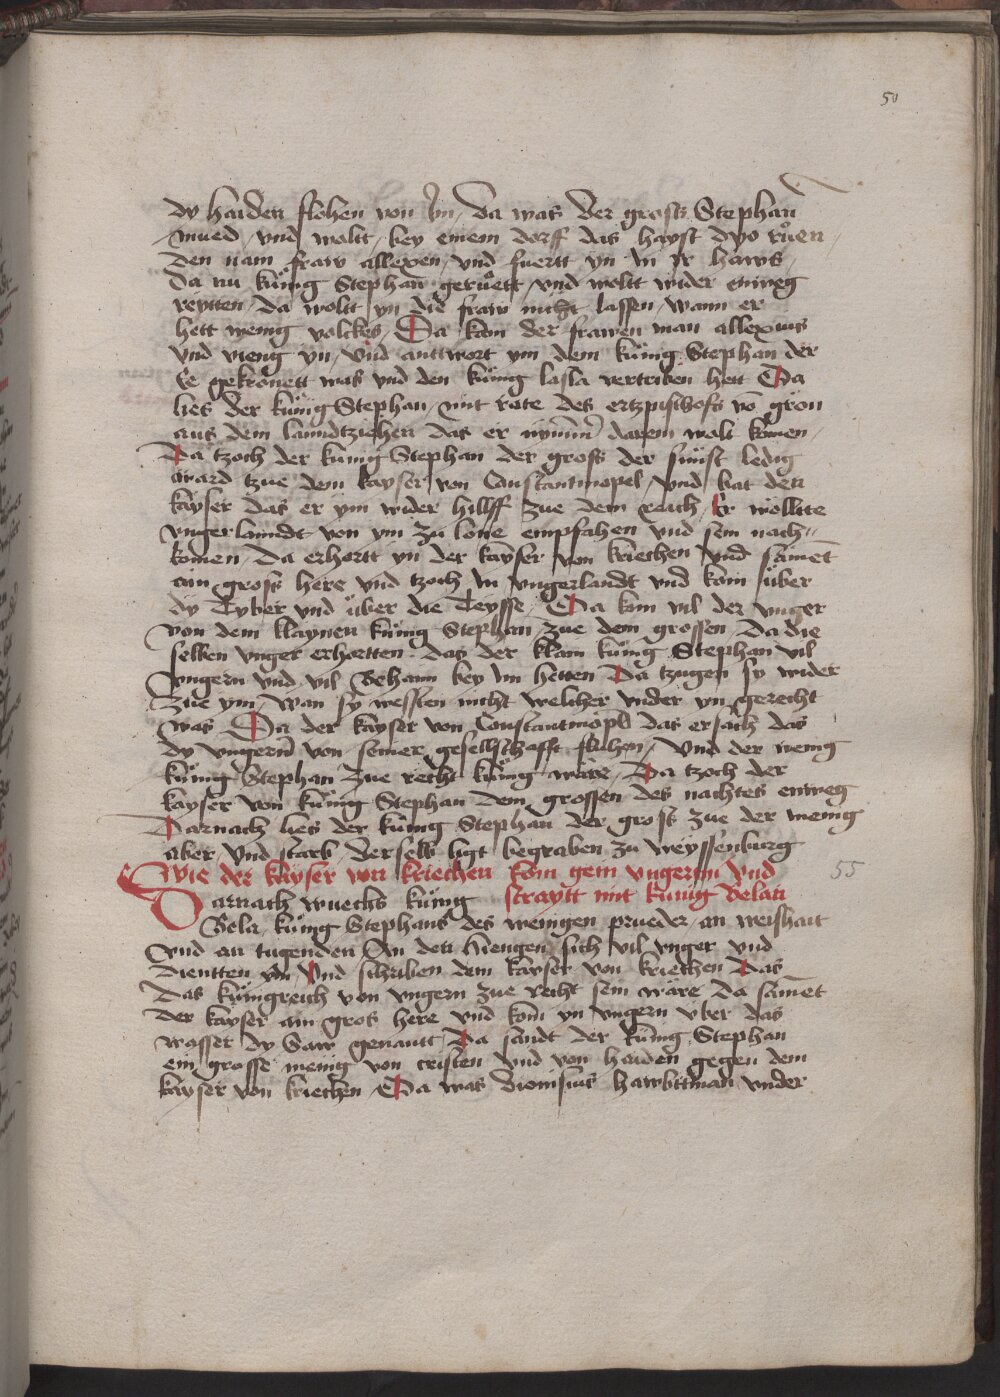 50
dy haiden flohen von Im / da was der gross Stephan
mued / vnd wolt / bey einem dorff das hayst dyo ruͦen /
den nam fraw allexen / vnd fuertt yn In Ir haws /
Da nu kuͤnig Stephan geruͦett / vnd woltt wider enweg
reytten / da woltt yn die fraw nicht lassen / wann er
hett wenig volckes / Da kam der frawen man allexius
vnd vieng yn / vnd anttwort ym dem kuͤnig Stephan der
Ee gekronett was vnd den kuͤnig lasla vertriben hett Da
lies der kuͤnig Stephan / mit rate des ertzpischofs vō gron
aus dem lanndtziehen das er nymmer darein wolt komen /
Da tzoch der kunig Stephan der gross der sunst ledig
ward tzue dem kayser von Constantinopel / vnd bat den
kayser das er ym wider hillff zue dem reich / Er wollte
vngerlanndt von ym zu lone empfahen vnd sein nach=
komen / Da erhortt yn der kayser von kriechen vnd samēt
ain gross here vnd tzoch In vngerlandt vnd kom uͤber
dy Tyber vnd uͤber die Teysse / Da kam vil der vnger
von dem klaynen kuͤnig Stephan / zue dem grossen / Da die
selben vnger erhortten das der klain kuͤnig Stephan vil
vngern vnd vil Behaim bey Im hetten Da tzugen sy wider
zue ym / Wan sy wessten nicht welcher vnder yn gerecht
was Da der kayser von Constantinopel das ersach das
dy vngern von seiner gesellschafft fluhen / Vnd der wenig
kuͤnig Stephan zue recht kuͤnig wäre / Da tzoch der
kayser von kuͤnig Stephan dem grossen des nachtes enweg
Darnach lies der kuͤnig Stephan der gross zue der menig
aber / vnd starb / derselb ligt begraben zu weyssenburg
Wie der kayser von kriechen kom gein vngernn vnd
55
straytt mit kunig Belan
Darnach wuechs kuͤnig
Bela / kuͤnig Stephans des wenigen prueder / an weishait
vnd an tugenden An den hiengen sich vil vnger vnd
dientten ym / Vnd schriben dem kayser von kriechen Das
Das kuͤnigreich von vngern zue recht sein wäre da samēt
der kayser ain gros here vnd kom yn vngern vber das
wasser dy Saw genantt / Da sandt der kunig Stephan
ein grosse menig von cristen vnd von haiden gegen dem
kayser von kriechen / Da was dionisius hawbttman vnder